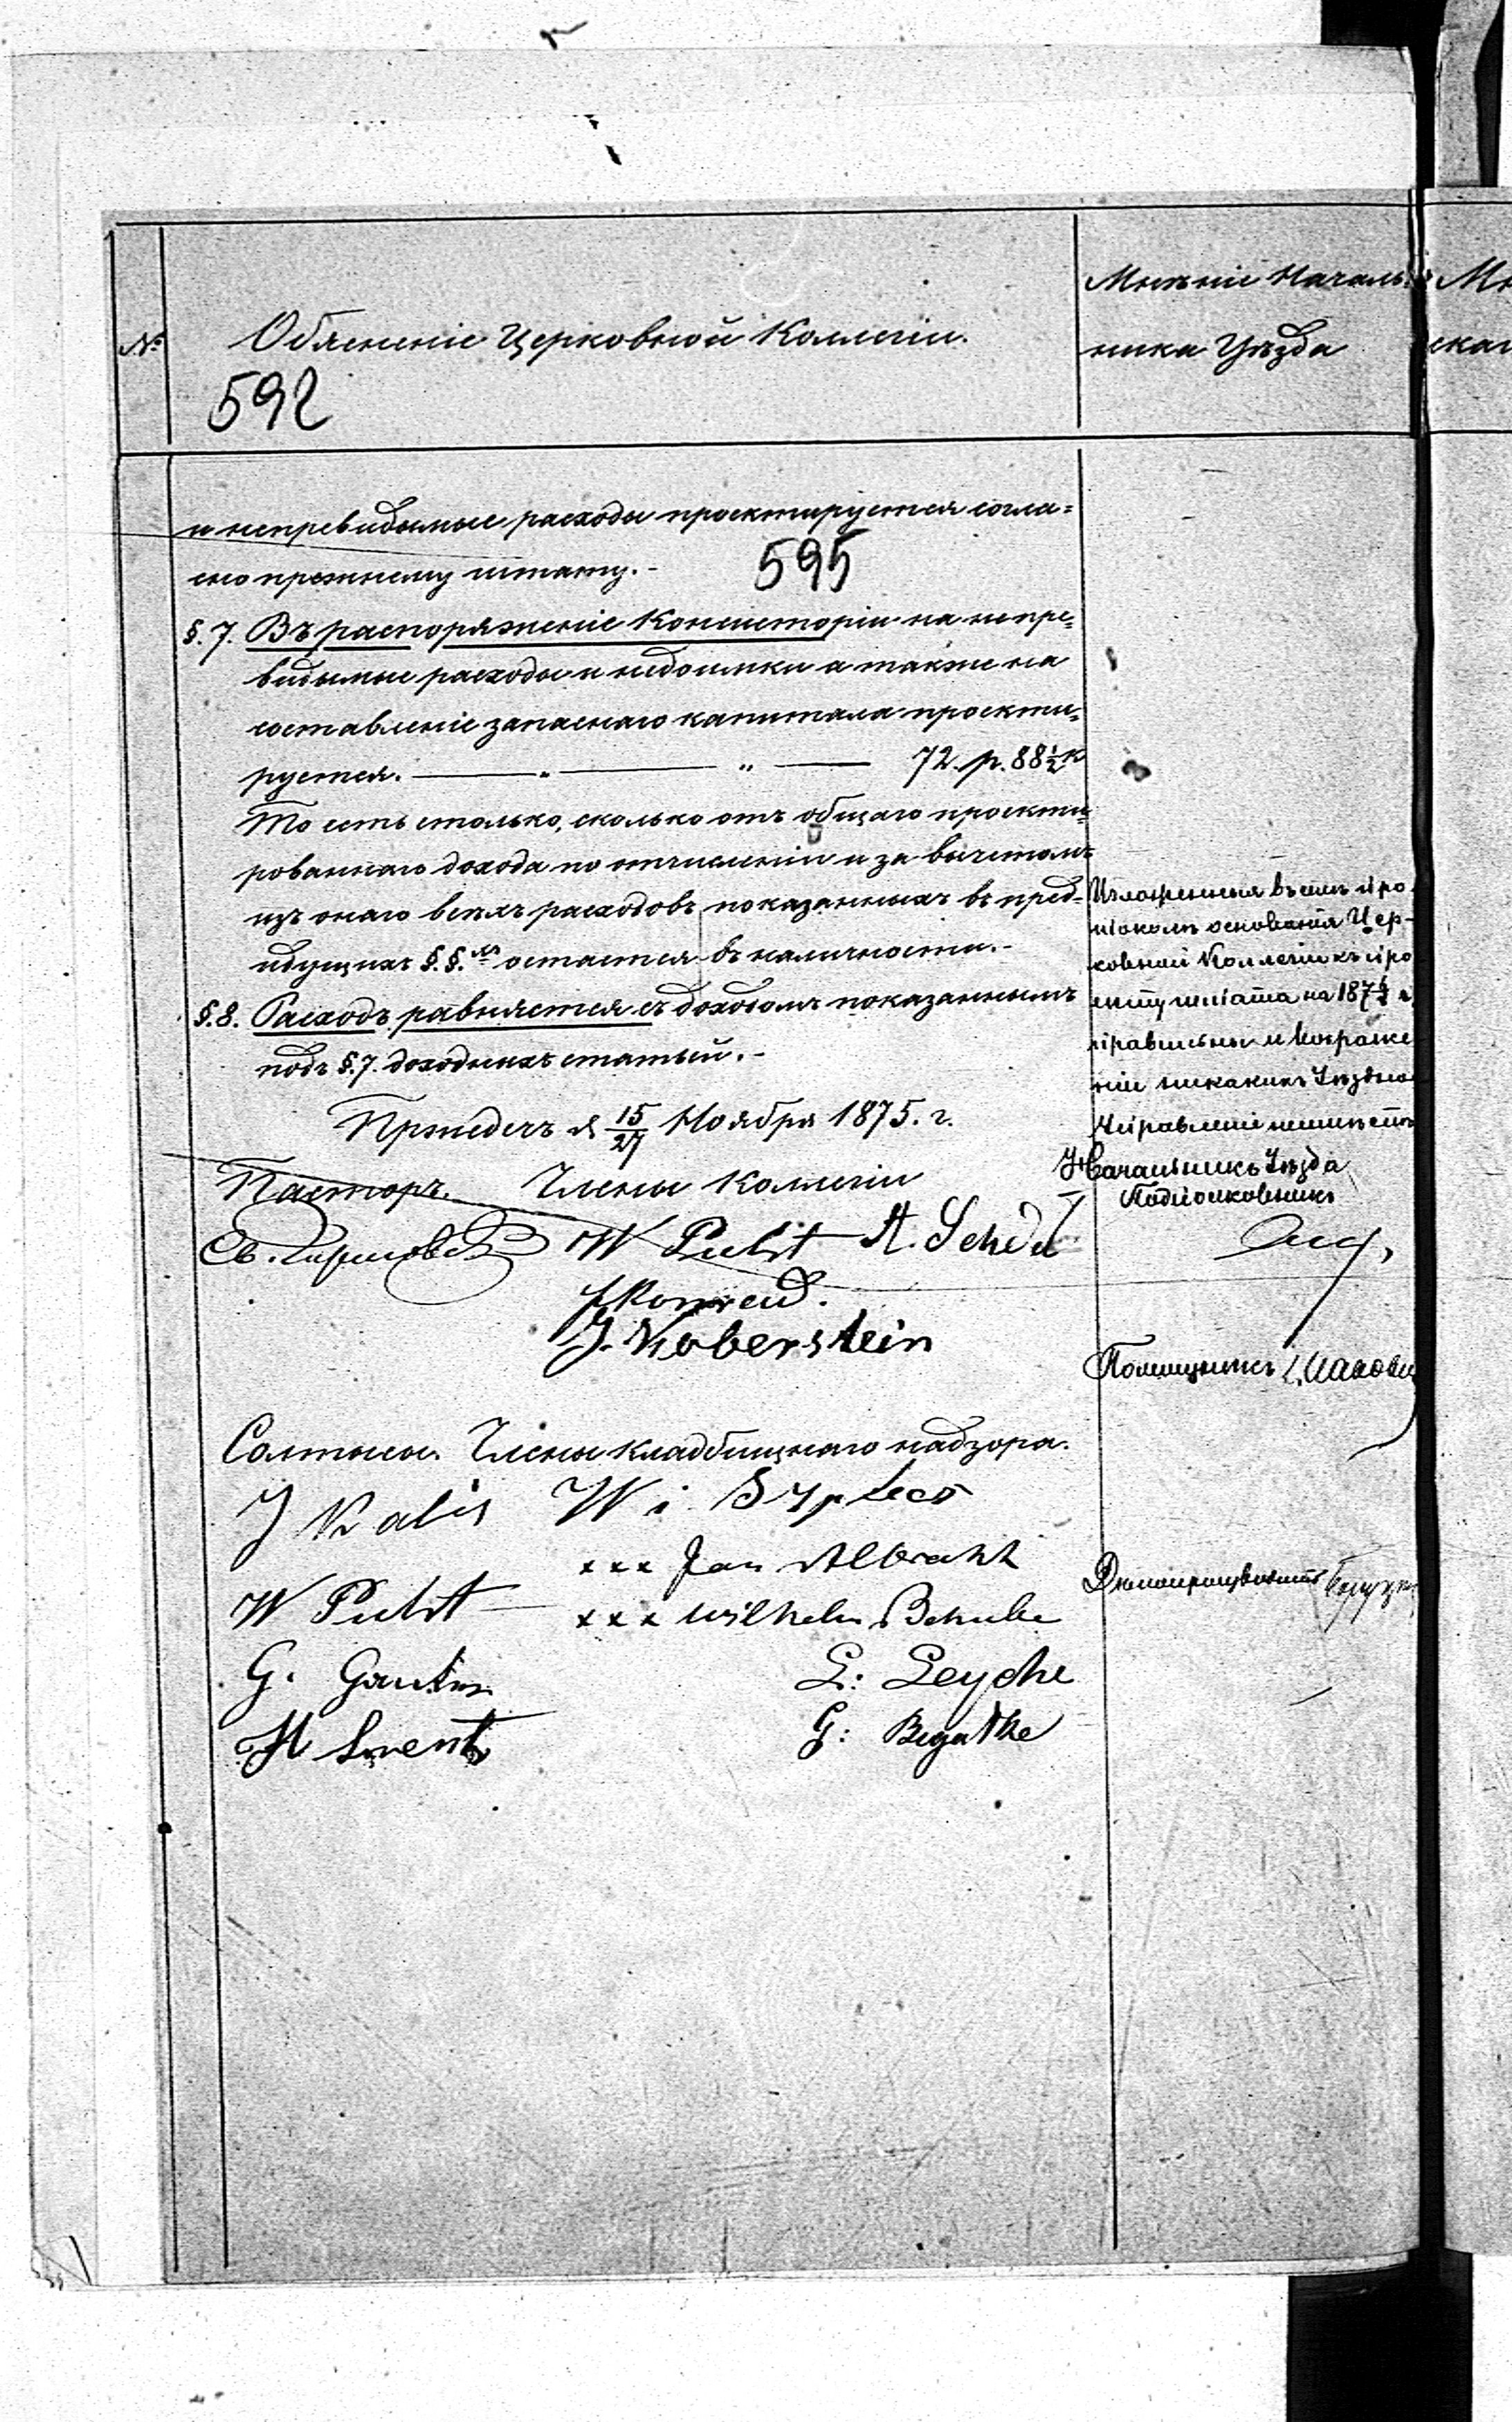 №
Обясненіе Церковной Коллегіи.
Мнѣніе Началь-
ника Уѣзда
592
и непревидимые расходы проектируется согла-
сно прежнему штату.-
595
§. 7. Въ распоряженіе Консисторіи на непре-
видимые расходы и недоимки а также на
составленіе запаснаго капитала проекти-
руется. — " — " — 72. р. 88 1/2 к
То есть столько, сколько отъ общаго проекти-
рованнаго дохода по отчисленіи и за вычетомъ
изъ онаго всѣхъ расходовъ показанныхъ въ пред-
идущихъ §.§.хъ остается въ наличности.-
§. 8. Расходъ равняется съ доходомъ показаннымъ
подъ §. 7. доходныхъ статьей.-
15/27 Ноября 1875. г.
Пасторъ. Члены Коллегіи
W Puhst A. Schedl
J. Koberstein
Солтысы. Члены кладбищнаго надзора.
J Kalis W i
xxx Jan Albracht
W Puhst xxx Wilhelm
G. L: Leyche
H G:
Изложенныя въ семъ про
токолѣ основанія Цер-
ковной Коллегіи къ про
екту штата на 187
правильны и возраже
ній никакихъ Уѣздное
Управленіе неимѣетъ
Начальникъ Уѣзда
Подполковникъ
Помощникъ
Дѣлопроизводитель